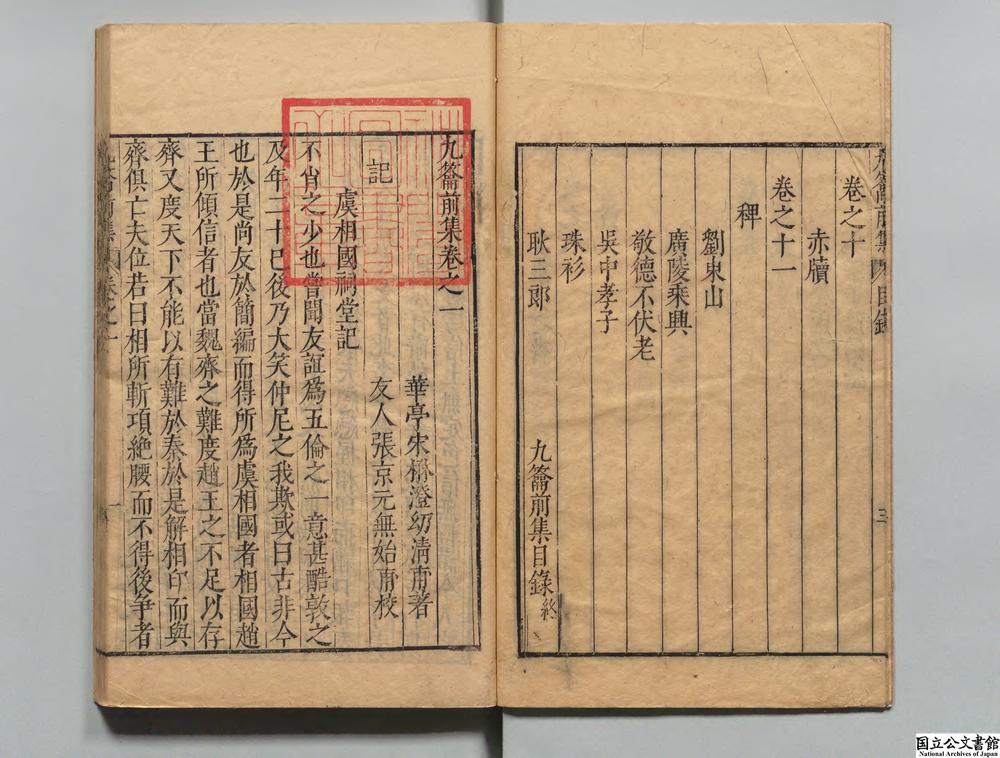 卷之十
赤牘
卷之十一
稗
劉東山
廣陵乘興
敬德不伏老
吳中孝子
珠衫
耿三郎
九籥前集目錄終
三
九籥前集卷之一
華亭宋楙澄幼清甫著
友人張京元無始甫校
記
虞相國祠堂記
不肖之少也嘗聞友誼爲五倫之一意甚酷敦之
及年二十已後乃大笑仲尼之我欺或曰古非今
也於是尚友於簡編而得所爲虞相國者相國趙
王所傾信者也當魏齊之難度趙王之不足以存
齊又度天下不能以有難於秦於是解相印而與
齊俱亡夫位若曰相所斬項絕腰而不得後爭者
一
国立公文書館
National Archives of Japan